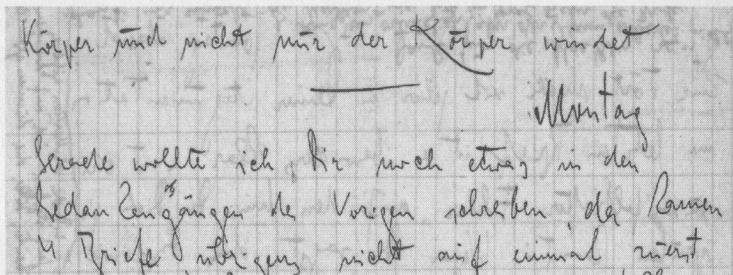 Körper und nicht nur der Körper windet
Montag
Gerade wollte ich Dir noch etwas in den
Gedankengängen des Vorigen schreiben, da kamen
4 Briefe übrigens nicht auf einmal zuerst